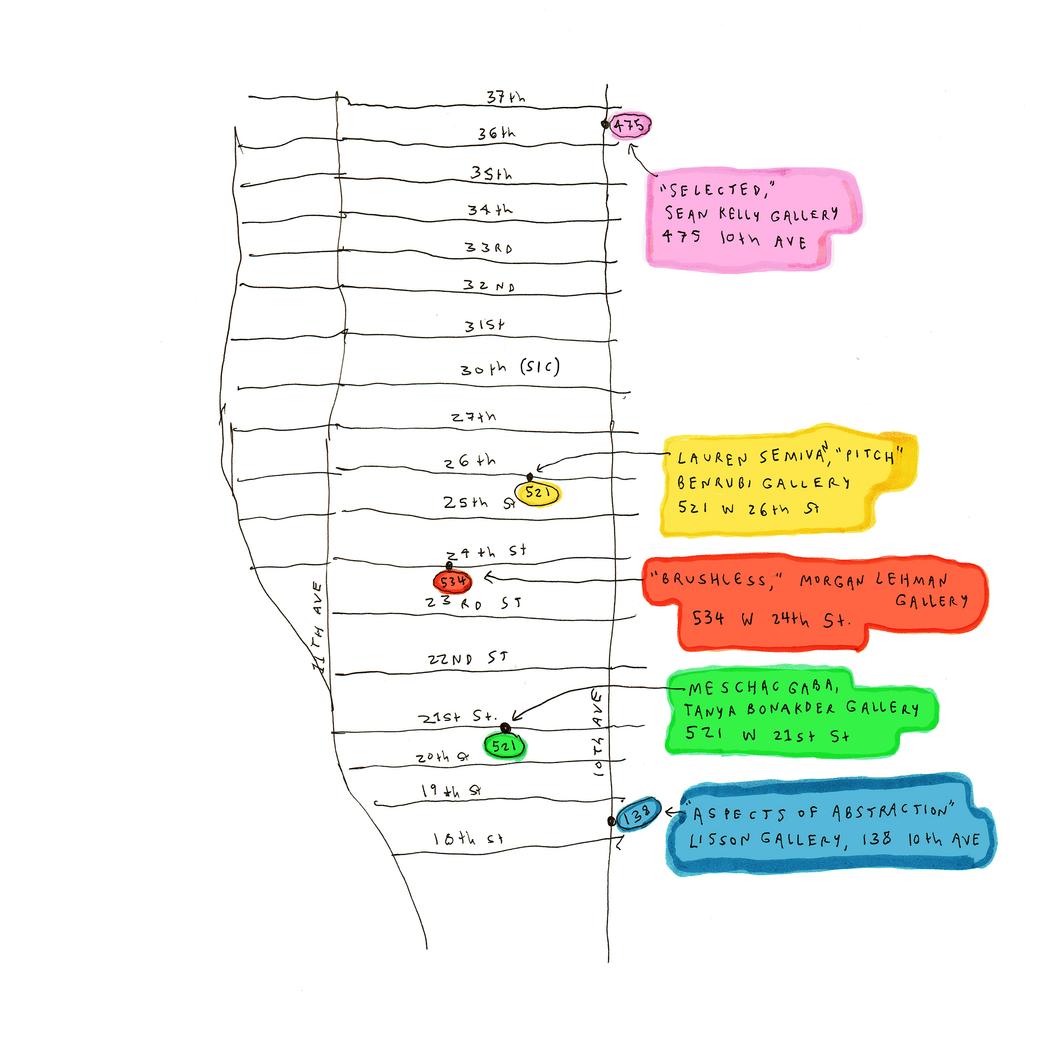 37th
475
36th
"SELECTED,"
SEAN KELLY GALLERY
475 10th AVE
35th
34th
33RD
32ND
31St
30th (SIC)
27th
26th
LAUREN SEMIVAN, "PITCH"
BENRUBI GALLERY
521 W 26th St
521
25th St
24th St
534
"BRUSHLESS," MORGAN LEHMAN
GALLERY
534 W 24th St.
23RD ST
11TH AVE
22ND ST
MESCHAC GABA,
TANYA BONAKDER GALLERY
521 W 21st St
21st St.
521
10TH AVE
20th St
19th St
138
"ASPECTS OF ABSTRACTION"
LISSON GALLERY, 138 10th AVE
18th St